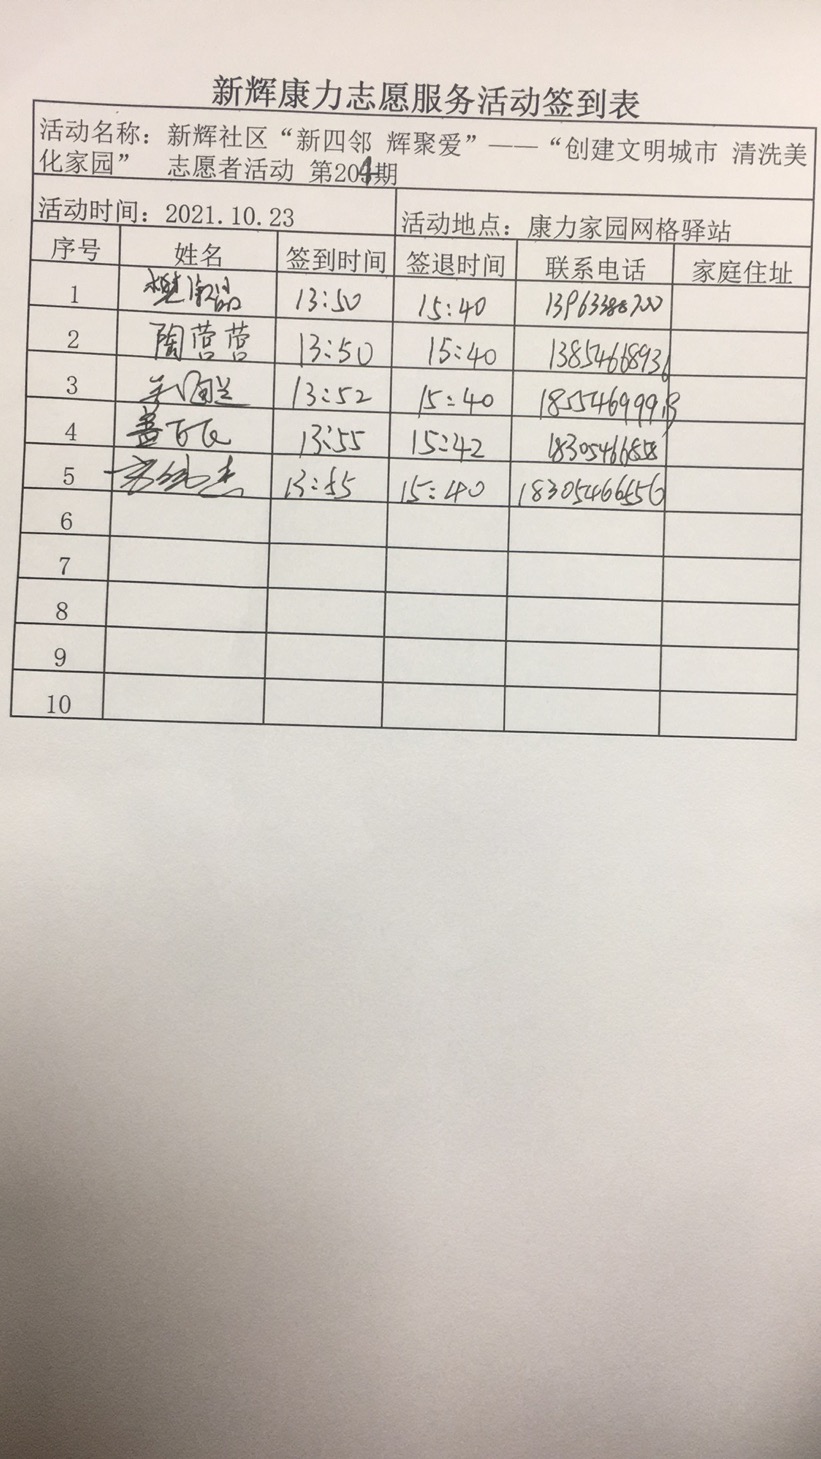 新辉康力志愿服务活动签到表
活动名称：新辉社区“新四邻 辉聚爱”——“创建文明城市 清洗美
化家园” 志愿者活动 第204期
活动时间：2021.10.23 活动地点：康力家园网格驿站
序号 姓名 签到时间 签退时间 联系电话 家庭住址
1 13:50 15:40
2 陶营营 13:50 15:40 13854668936
3 13:52 15:40
4 13:55 15:42
5 13:55 15:40 18305466556
6
7
8
9
10